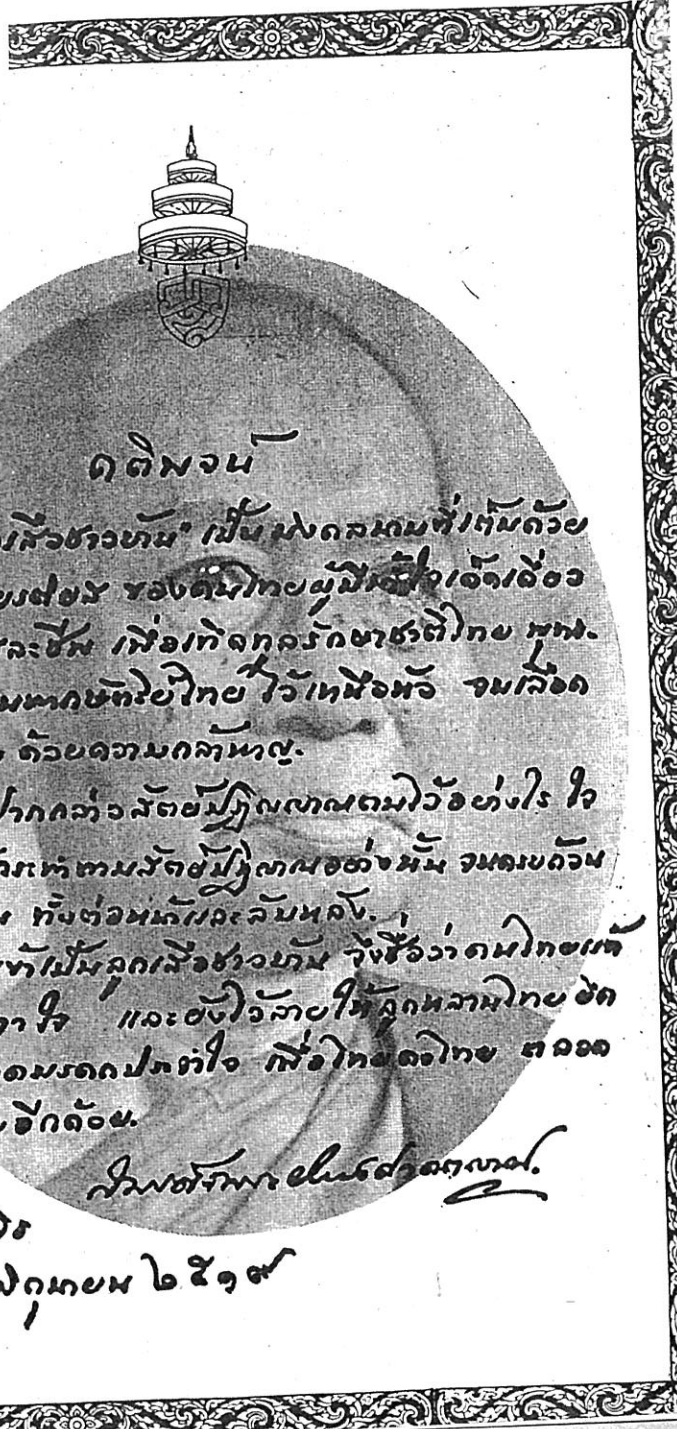 คติพจน์
เสือชาวบ้าน" เป็นมงคลนามที่เต็มด้วย
ของคนไทยผู้มีน้ำใจเด็ดเดี่ยว
สละชีพ เพื่อเทิดทูลรักษาชาติไทย พุทธ.
มหากษัตริย์ไทย ไว้เหนือหัว จนเลือด
ด้วยความกล้าหาญ.
ปากกล่าวสัตย์ปฏิญญาณตนไว้อย่างไร ใจ
กระทำตามสัตย์ปฏิญาณอย่างนั้น จนครบถ้วน
ทั้งต่อหน้าและลับหลัง.
เข้าเป็นลูกเสือชาวบ้าน จึงชื่อว่าคนไทยแท้
ใจ และยังไว้ลายให้ลูกหลานไทย ยึด
มรดกประจำใจ เพื่อไทยคงไทย ตลอด
อีกด้วย.
มิถุนายน ๒๕๑๙